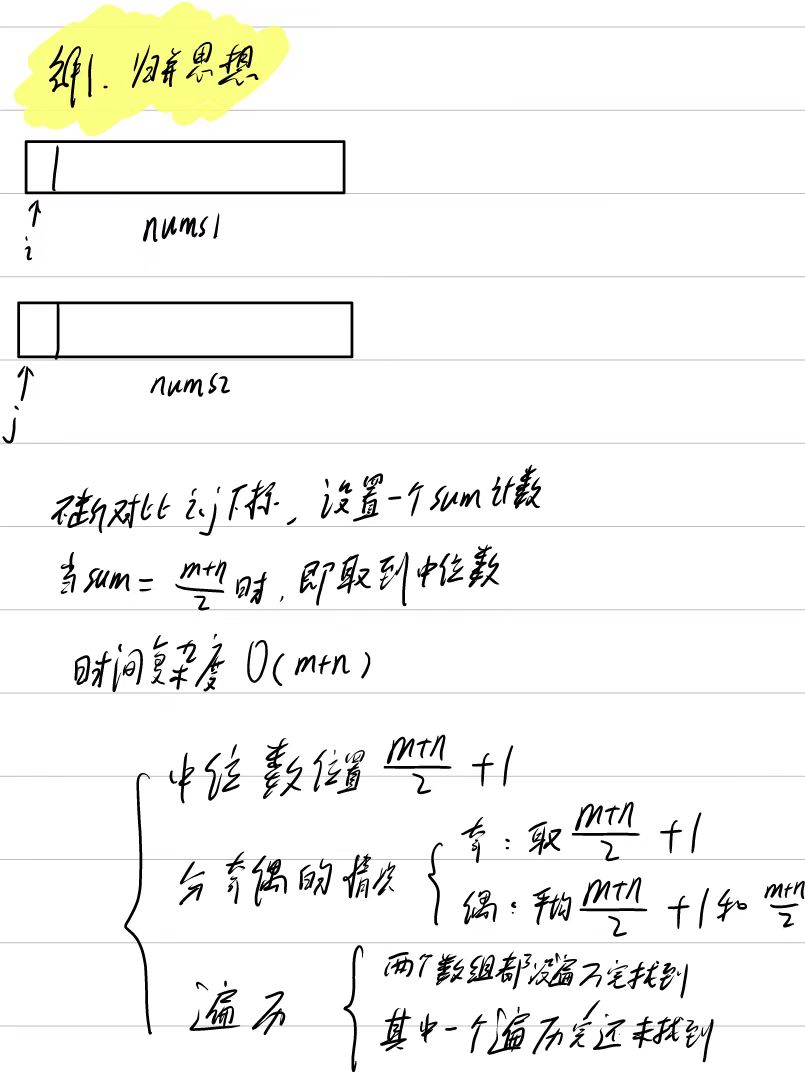 解1. 归并思想
nums1
i
nums2
j
不断对比 i,j下标, 设置一个sum计数
当sum = \frac{m+n}{2} 时, 即取到中位数
时间复杂度 O(m+n)
中位数位置 \frac{m+n}{2} +1
分奇偶的情况
奇: 取 \frac{m+n}{2} +1
偶: 平均 \frac{m+n}{2} +1 和 \frac{m+n}{2}
遍历
两个数组都没遍历完找到
其中一个遍历完还未找到